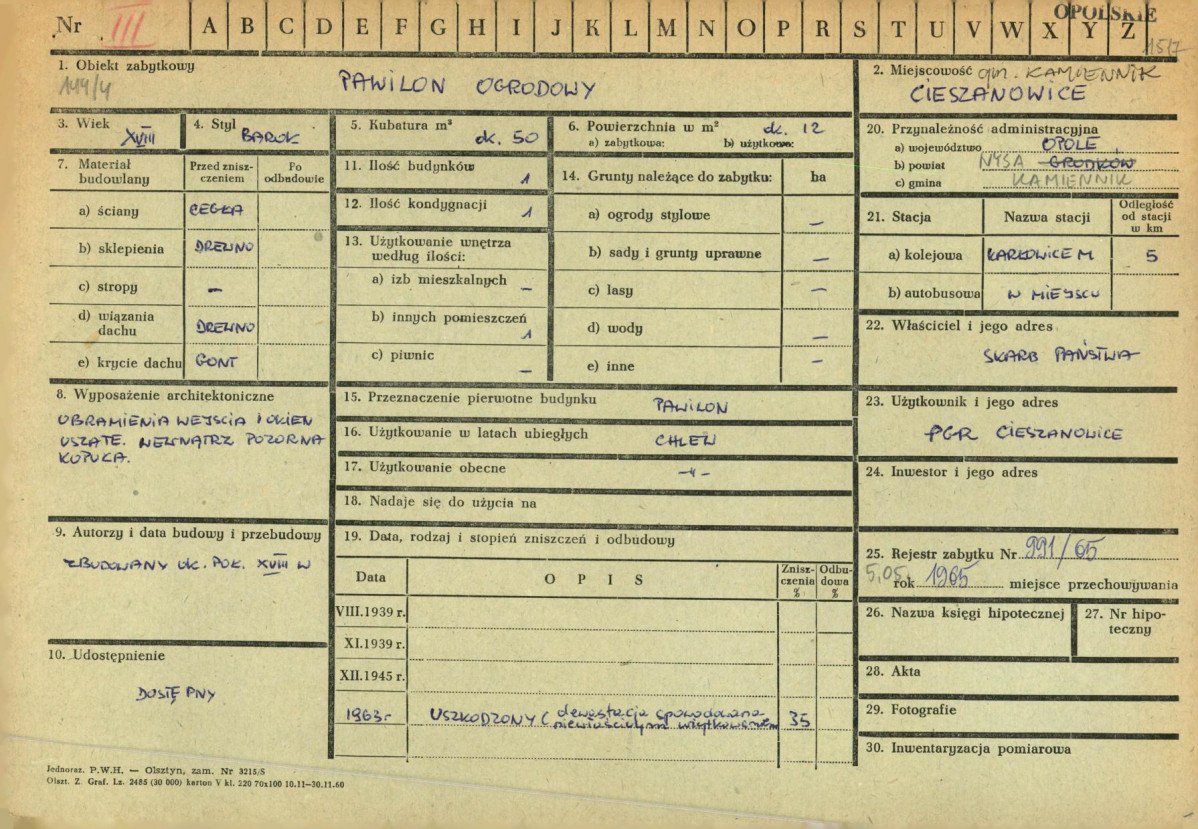 Nr III A B C D E F G H I J K L M N O P R S T U V W X Y Z
OPOLSKIE
1517
1. Obiekt zabytkowy
144/4
PAWILON OGRODOWY
2. Miejscowość gm. KAMIENNIK
CIESZANOWICE
3. Wiek
XVIII
4. Styl
BAROK
5. Kubatura m³
ok. 50
6. Powierzchnia w m² ok. 12
a) zabytkowa: b) użytkowa:
20. Przynależność administracyjna
a) województwo OPOLE
b) powiat NYSA GRODKÓW
c) gmina KAMIENNIK
7. Materiał budowlany
Przed zniszczeniem
Po odbudowie
a) ściany CEGŁA
b) sklepienia DREWNO
c) stropy –
d) wiązania dachu DREWNO
e) krycie dachu GONT
11. Ilość budynków 1
12. Ilość kondygnacji 1
13. Użytkowanie wnętrza
według ilości:
a) izb mieszkalnych –
b) innych pomieszczeń
1
c) piwnic –
14. Grunty należące do zabytku: ha
a) ogrody stylowe –
b) sady i grunty uprawne –
c) lasy –
d) wody –
e) inne –
21. Stacja Nazwa stacji Odległość od stacji w km
a) kolejowa KARŁOWICE M 5
b) autobusowa W MIEJSCU
22. Właściciel i jego adres
SKARB PAŃSTWA
8. Wyposażenie architektoniczne
OBRAMIENIA WEJSCIA I OKIEN
USZATE. WEWNĄTRZ POZORNA
KOPUŁA.
15. Przeznaczenie pierwotne budynku PAWILON
16. Użytkowanie w latach ubiegłych CHLEW
17. Użytkowanie obecne –"–
18. Nadaje się do użycia na
23. Użytkownik i jego adres
PGR CIESZANOWICE
24. Inwestor i jego adres
9. Autorzy i data budowy i przebudowy
ZBUDOWANY OK. POŁ. XVIII W
19. Data, rodzaj i stopień zniszczeń i odbudowy
Data OPIS Zniszczenia % Odbudowa %
VIII.1939 r.
XI.1939 r.
XII.1945 r.
1963 r USZKODZONY (dewastacja spowodowana
niewłaściwym użytkowaniem 35
25. Rejestr zabytku Nr 991/65
5.05. rok 1965 miejsce przechowywania
26. Nazwa księgi hipotecznej
27. Nr hipoteczny
10. Udostępnienie
DOSTĘPNY
28. Akta
29. Fotografie
30. Inwentaryzacja pomiarowa
Jednoraz. P.W.H. — Olsztyn, zam. Nr 3215/S
Olszt. Z. Graf. Lz. 2485 (30 000) karton V kl. 220 70x100 10.11—30.11.60